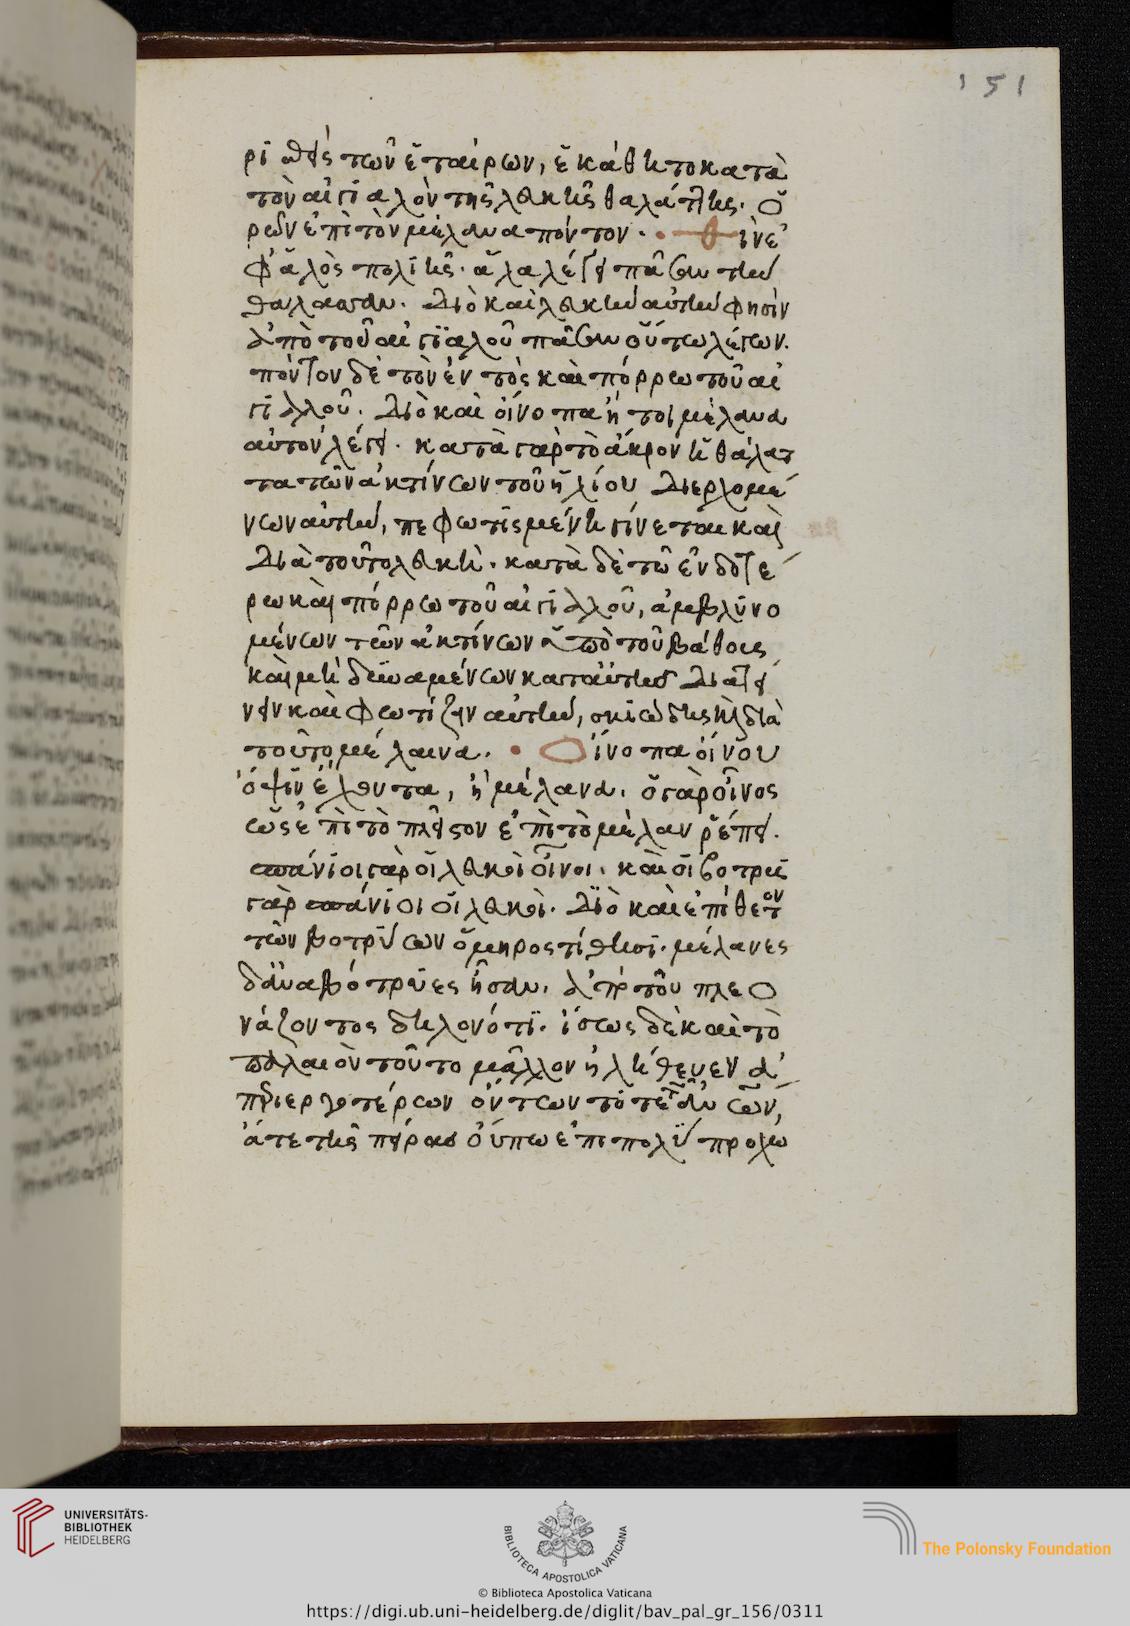 151
ρὶ
τῶν ἑταίρων, ἐκάθητο κατὰ
τὸν αἰγιαλὸν τῆς λευκῆς θαλάττης. ὁ
ρῶν ἐπὶ τὸν μέλανα πόντον. θῖν ἐ
φ' ἁλὸς πολιῆς. ἅλα λέγει πᾶσαν τὴν
θάλασσαν. διὸ καὶ λευκὴν αὐτὴν φησὶν
ἀπὸ τοῦ αἰγιαλοῦ πᾶσαν οὕτω λέγων.
πόντον δὲ τὸν ἐντὸς καὶ πόρρω τοῦ αἰ
γιαλοῦ. διὸ καὶ οἴνοπα ἤτοι μέλανα
αὐτὸν λέγει. κατὰ γὰρ τὸ ἄκρον ἡ θάλατ
τα τῶν ἀκτίνων τοῦ ἡλίου διερχομέ
νων αὐτὴν, πεφωτισμένη γίνεται καὶ
διὰ τοῦτο λευκὴ. κατὰ δὲ τῶ ἐνδοτέ
ρω καὶ πόρρω τοῦ αἰγιαλοῦ, ἀμβλυνο
μένων τῶν ἀκτίνων ἀπὸ τοῦ βάθους
καὶ μὴ δυναμένων κατ' αὐτῆς διατεί
νειν καὶ φωτίζειν αὐτὴν, σκιώδης καὶ διὰ
τοῦτο μέλαινα. Οἴνοπα οἴνου
ὄψιν ἔχοντα, ἢ μέλανα. ὁ γὰρ οἶνος
ὡς ἐπὶ τὸ πλεῖστον ἐπὶ τὸ μέλαν ῥέπει.
σπάνιοι γὰρ οἱ λευκοὶ οἶνοι. καὶ οἱ βότρυες
γὰρ σπάνιοι οἱ λευκοὶ. διὸ καὶ ἐπίθετον
τῶν βοτρύων ὅμηρος τίθησι. μέλανες
δ' ἀνὰ βότρυες ἦσαν. ἀπὸ τοῦ πλεο
νάζοντος δηλονότι. ἴσως δὲ καὶ τὸ
παλαιὸν τοῦτο μᾶλλον ἠλήθευεν ἀ
περιεργοτέρων ὄντων τότε τῶν ἀνῶν,
ἅτε τῆς πείρας οὔπω ἐπιπολὺ προχω
UNIVERSITÄTS-
BIBLIOTHEK
HEIDELBERG
BIBLIOTECA APOSTOLICA VATICANA
The Polonsky Foundation
© Biblioteca Apostolica Vaticana
https://digi.ub.uni-heidelberg.de/diglit/bav_pal_gr_156/0311